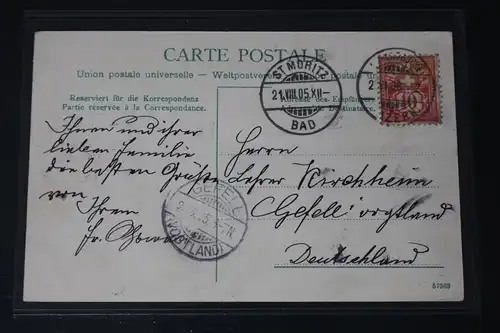 CARTE POSTALE
Union postale universelle – Weltpostverein postale universale
Reserviert für die Korrespondenz
Partie réservée à la Correspondance.
Adresse des Empfängers
Destinataire.
ST MORITZ
21.VIII.05.XII-
BAD
10
GEFELL
(VOGTLAND)
Ihnen und ihrer
lieben Familie
die besten Grüße
von
Ihrem
Herrn
Lehrer Kirchheim
Gefell vogtland
Deutschland
57949